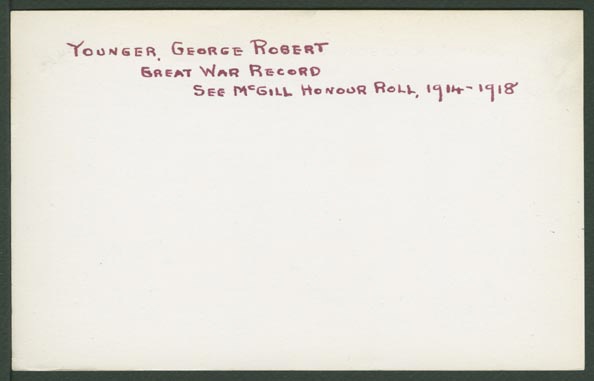 YOUNGER, GEORGE ROBERT
GREAT WAR RECORD
SEE McGILL HONOUR ROLL, 1914-1918